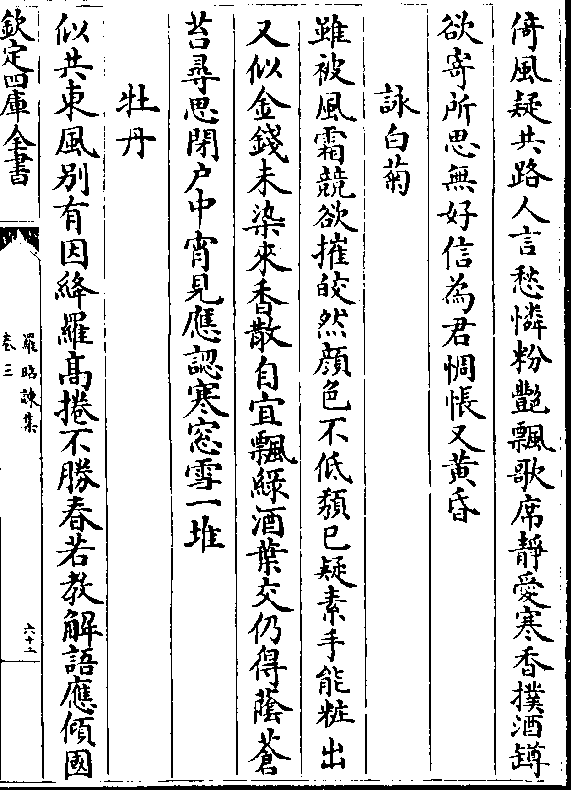 倚風疑共路人言愁憐粉艷飄歌席靜愛寒香撲酒罇
欲寄所思無好信為君惆悵又黃昏
詠白菊
雖被風霜競欲摧皎然顔色不低頽已疑素手能粧出
又似金錢未染來香散自宜飄綠酒葉交仍得蔭蒼
苔尋思閉户中宵見應認寒窓雪一堆
牡丹
似共東風别有因絳羅髙捲不勝春若教解語應傾國
欽定四庫全書
羅昭諫集
卷三
六十二